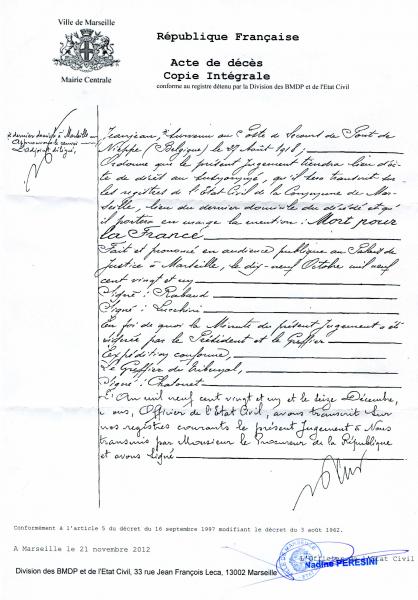 Ville de Marseille
Mairie Centrale
République Française
Acte de décès
Copie Intégrale
conforme au registre détenu par la Division des BMDP et de l'Etat Civil
dernier domicile à Marseille
Approuvons le renvoi
Jeanjean, survenu au Poste de Secours de Pont de
Nieppe (Belgique) le 27 Août 1918;
Ordonne que le présent jugement tiendra lieu d'ac-
te de décès au susnommé, qu'il sera transcrit sur
les registres de l'Etat Civil de la Commune de Mar-
seille, lieu du dernier domicile du décédé et qu'
il portera en marge la mention: Mort pour
la France
Fait et prononcé en audience publique au Palais de
Justice à Marseille, le dix-neuf Octobre mil neuf
cent vingt et un
Signé: Rabaud
Signé:
En foi de quoi la Minute du présent Jugement a été
signée par le Président et le Greffier
Expédition conforme,
Le Greffier du tribunal,
Signé:
L'An mil neuf cent vingt et un et le seize Décembre,
nous, Officier de l'Etat Civil, avons transcrit sur
nos registres courants le présent Jugement à Nous
transmis par Monsieur le Procureur de la République
et avons signé
Conformément à l'article 5 du décret du 16 septembre 1997 modifiant le décret du 3 août 1962.
A Marseille le 21 novembre 2012
L'Officier de l'Etat Civil
Nadine PERESINI
Division des BMDP et de l'Etat Civil, 33 rue Jean François Leca, 13002 Marseille